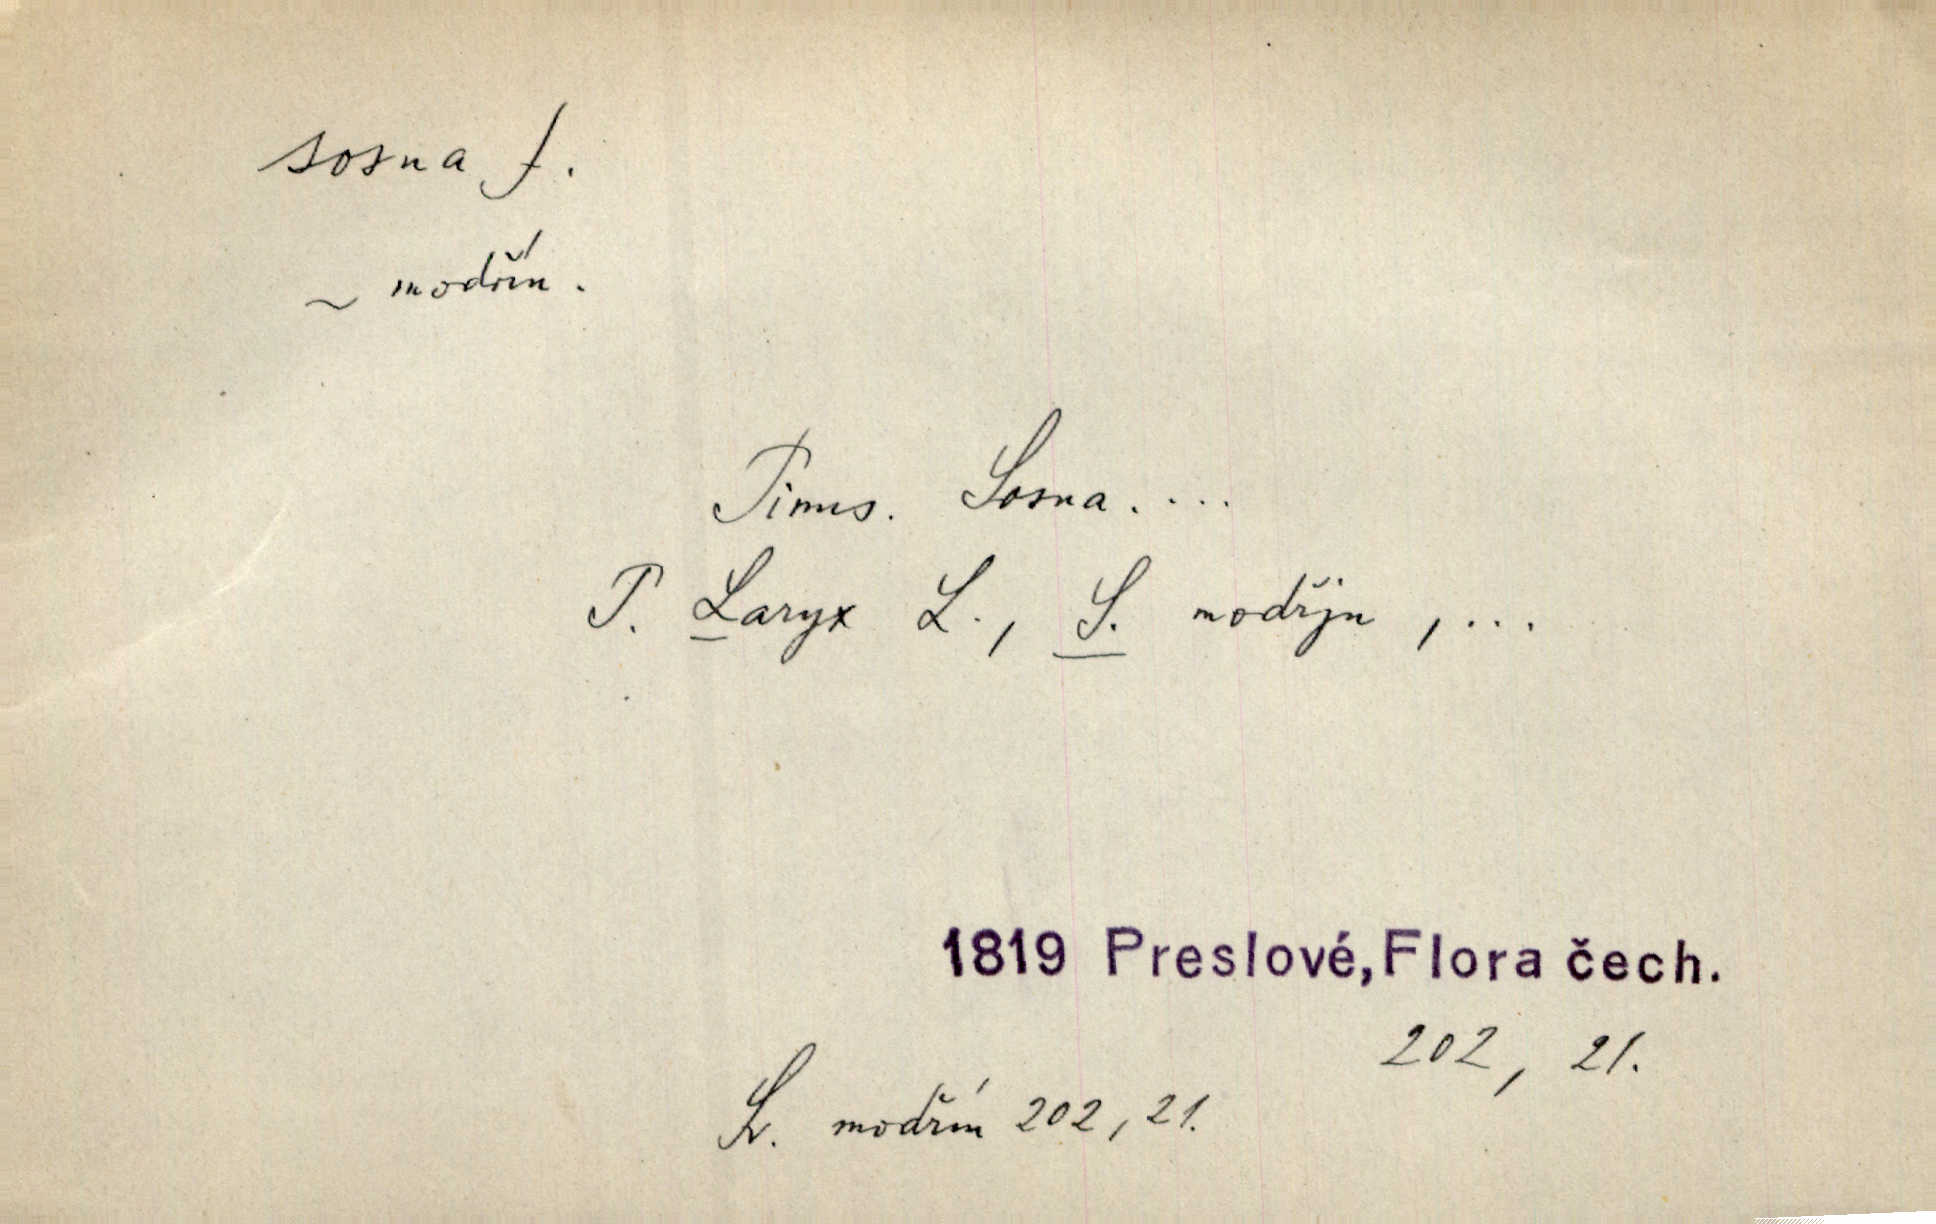 sosna f.
~ modřín.
Pinus. Sosna. ...
P. Laryx L., S. modřjn, ...
1819 Preslové, Flora čech.
202, 21.
Sv. modřín 202, 21.